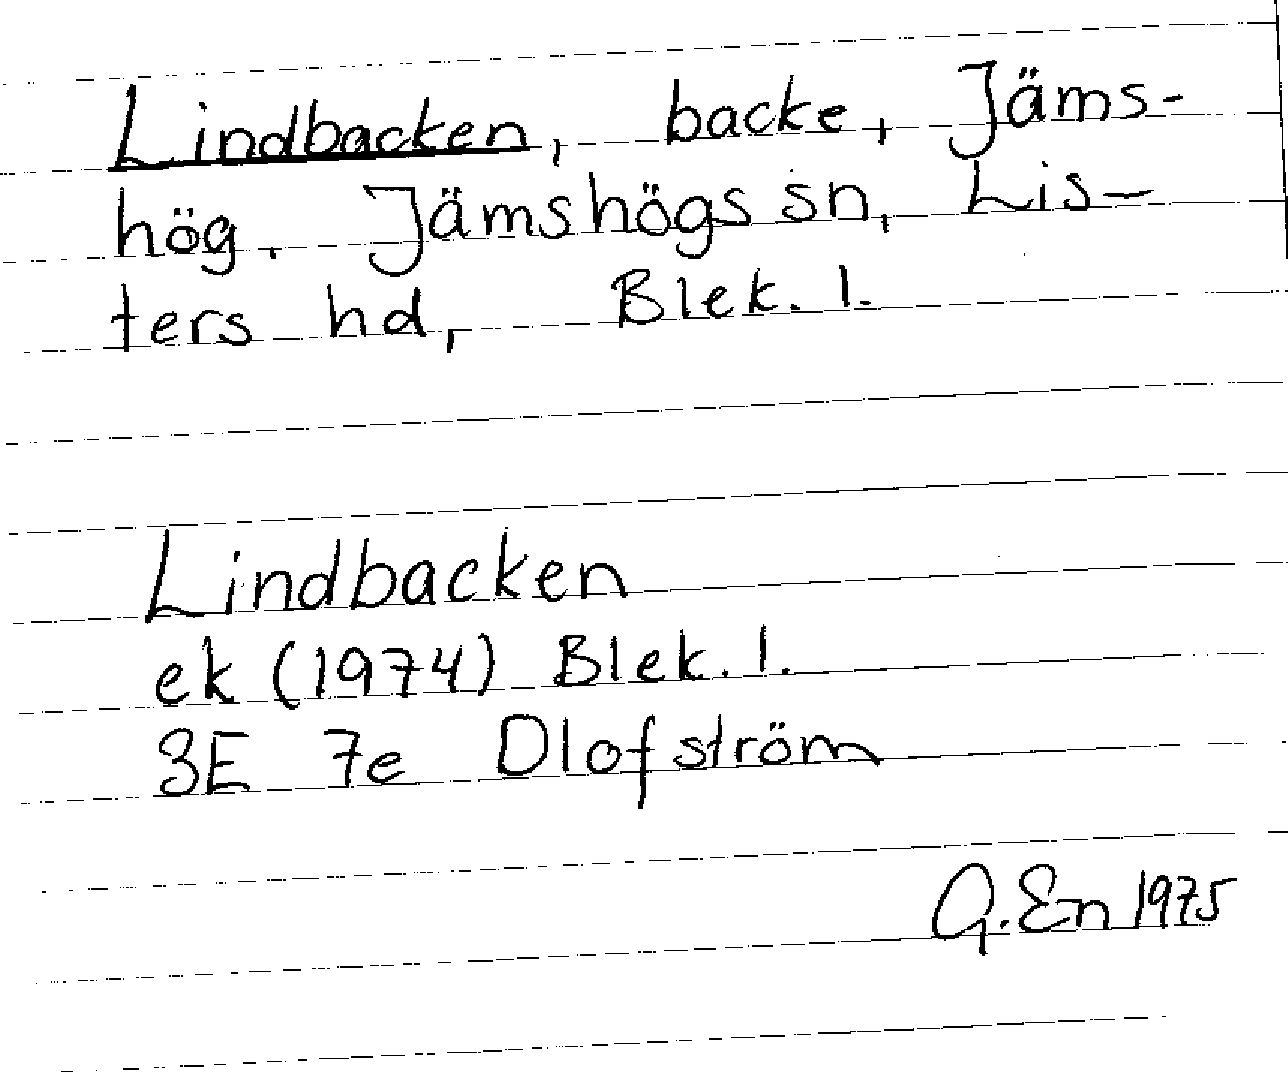 Lindbacken, backe, Jäms-
hög, Jämshögs sn, Lis-
ters hd, Blek. l.
Lindbacken
ek (1974) Blek. l.
3E 7e Olofström
G. En 1975